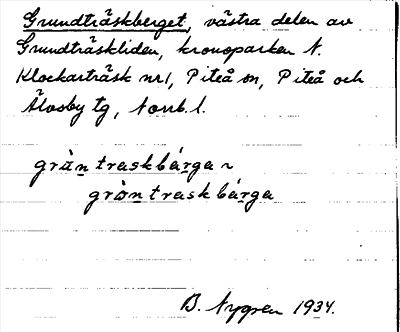 Grundträskberget, västra delen av
Grundträskliden, kronoparken N.
Klockarträsk nr1, Piteå sn, Piteå och
Älvsby tg, Norrb. l.
grȧntraskbárga ~
grȯntraskbárga
B. Nygren 1934.